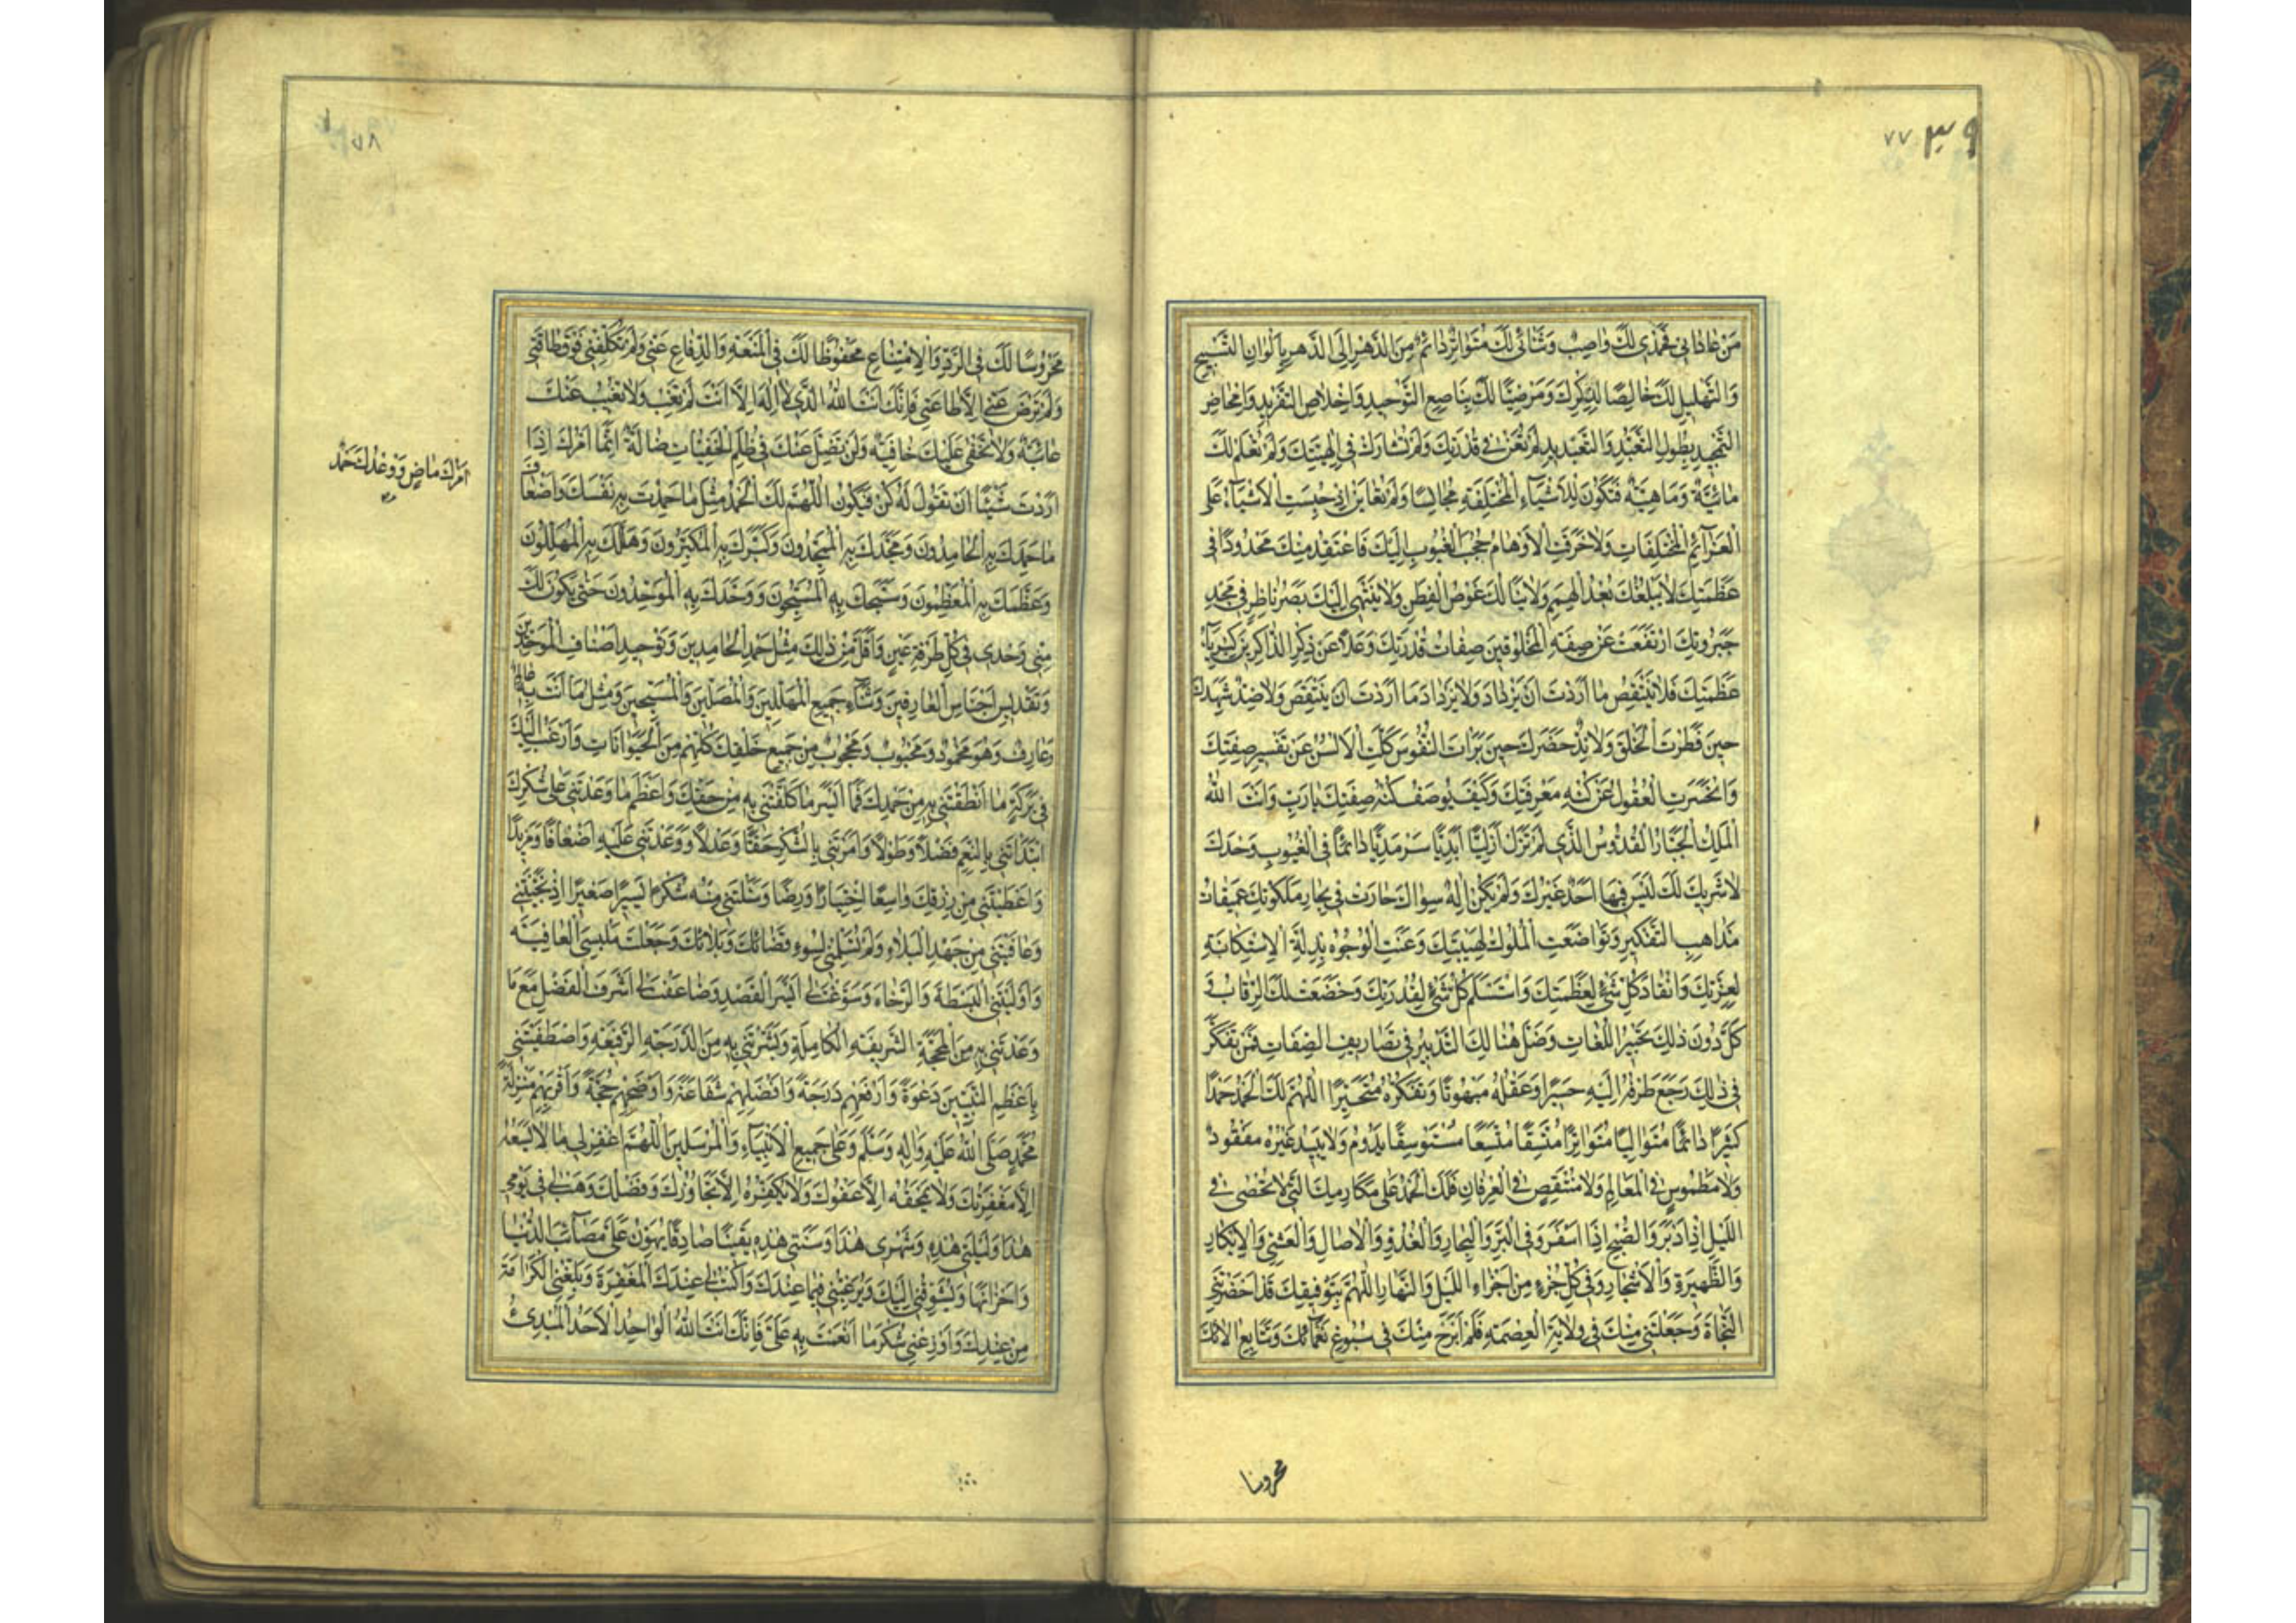 ٣٩ ٧٧
مَنْ عَادَانِي فَحَمْدِي لَكَ وَاصِبٌ وَثَنَائِي لَكَ مُتَوَاتِرٌ دَائِمٌ مِنَ الدَّهْرِ اِلَى الدَّهْرِ بِأَلْوَانِ التَّسْبِيحِ
وَالتَّهْلِيلِ لَكَ خَالِصًا لِذِكْرِكَ وَمَرْضِيًّا لَكَ بِنَاصِعِ التَّوْحِيدِ وَاِخْلَاصِ التَّفْرِيدِ وَاِمْحَاضِ
التَّمْجِيدِ بِطُولِ التَّعَبُّدِ وَالتَّعْدِيدِ لَمْ تُعَنْ فِي قُدْرَتِكَ وَلَمْ تُشَارَكْ فِي اِلٰهِيَّتِكَ وَلَمْ تُعْلَمْ لَكَ
مَائِيَّةٌ وَمَاهِيَّةٌ فَتَكُونَ لِلْاَشْيَاءِ الْمُخْتَلِفَةِ مُجَانِسًا وَلَمْ تُعَايَنْ اِذْ حُبِسَتِ الْاَشْيَاءُ عَلَى
الْعَزَائِمِ الْمُخْتَلِفَاتِ وَلَا خَرَقَتِ الْاَوْهَامُ حُجُبَ الْغُيُوبِ اِلَيْكَ فَاَعْتَقِدَ مِنْكَ مَحْدُودًا فِي
عَظَمَتِكَ لَا يَبْلُغُكَ بُعْدُ الْهِمَمِ وَلَا يَنَالُكَ غَوْصُ الْفِطَنِ وَلَا يَنْتَهِي اِلَيْكَ بَصَرُ نَاظِرٍ فِي مَجْدِ
جَبَرُوتِكَ ارْتَفَعَتْ عَنْ صِفَةِ الْمَخْلُوقِينَ صِفَاتُ قُدْرَتِكَ وَعَلَا عَنْ ذِكْرِ الذَّاكِرِينَ كِبْرِيَاءُ
عَظَمَتِكَ فَلَا يَنْتَقِصُ مَا اَرَدْتَ اَنْ يَزْدَادَ وَلَا يَزْدَادُ مَا اَرَدْتَ اَنْ يَنْتَقِصَ وَلَا ضِدٌّ شَهِدَكَ
حِينَ فَطَرْتَ الْخَلْقَ وَلَا نِدٌّ حَضَرَكَ حِينَ بَرَأْتَ النُّفُوسَ كَلَّتِ الْاَلْسُنُ عَنْ تَفْسِيرِ صِفَتِكَ
وَانْحَسَرَتِ الْعُقُولُ عَنْ كُنْهِ مَعْرِفَتِكَ وَكَيْفَ يُوصَفُ كُنْهُ صِفَتِكَ يَا رَبِّ وَاَنْتَ اللهُ
الْمَلِكُ الْجَبَّارُ الْقُدُّوسُ الَّذِي لَمْ تَزَلْ اَزَلِيًّا اَبَدِيًّا سَرْمَدِيًّا دَائِمًا فِي الْغُيُوبِ وَحْدَكَ
لَا شَرِيكَ لَكَ لَيْسَ فِيهَا اَحَدٌ غَيْرُكَ وَلَمْ يَكُنْ اِلٰهٌ سِوَاكَ حَارَتْ فِي بِحَارِ مَلَكُوتِكَ عَمِيقَاتُ
مَذَاهِبِ التَّفْكِيرِ وَتَوَاضَعَتِ الْمُلُوكُ لِهَيْبَتِكَ وَعَنَتِ الْوُجُوهُ بِذِلَّةِ الْاِسْتِكَانَةِ
لِعِزَّتِكَ وَانْقَادَ كُلُّ شَيْءٍ لِعَظَمَتِكَ وَاسْتَسْلَمَ كُلُّ شَيْءٍ لِقُدْرَتِكَ وَخَضَعَتْ لَكَ الرِّقَابُ وَ
كَلَّ دُونَ ذٰلِكَ تَحْبِيرُ اللُّغَاتِ وَضَلَّ هُنَالِكَ التَّدْبِيرُ فِي تَصَارِيفِ الصِّفَاتِ فَمَنْ تَفَكَّرَ
فِي ذٰلِكَ رَجَعَ طَرْفُهُ اِلَيْهِ حَسِيرًا وَعَقْلُهُ مَبْهُوتًا وَتَفَكُّرُهُ مُتَحَيِّرًا اَللّٰهُمَّ لَكَ الْحَمْدُ حَمْدًا
كَثِيرًا دَائِمًا مُتَوَالِيًا مُتَوَاتِرًا مُتَّسِقًا مُتَّسِعًا مُسْتَوْسِقًا يَدُومُ وَلَا يَبِيدُ غَيْرَ مَفْقُودٍ
وَلَا مَطْمُوسٍ فِي الْمَعَالِمِ وَلَا مُنْتَقِصٍ فِي الْعِرْفَانِ فَلَكَ الْحَمْدُ عَلَى مَكَارِمِكَ الَّتِي لَا تُحْصَى فِي
اللَّيْلِ اِذَا اَدْبَرَ وَالصُّبْحِ اِذَا اَسْفَرَ وَفِي الْبَرِّ وَالْبِحَارِ وَالْغُدُوِّ وَالْاٰصَالِ وَالْعَشِيِّ وَالْاِبْكَارِ
وَالظَّهِيرَةِ وَالْاَسْحَارِ وَفِي كُلِّ جُزْءٍ مِنْ اَجْزَاءِ اللَّيْلِ وَالنَّهَارِ اَللّٰهُمَّ بِتَوْفِيقِكَ قَدْ اَحْضَرْتَنِي
النَّجَاةَ وَجَعَلْتَنِي مِنْكَ فِي وِلَايَةِ الْعِصْمَةِ فَلَمْ اَبْرَحْ مِنْكَ فِي سُبُوغِ نَعْمَائِكَ وَتَتَابُعِ اٰلَائِكَ
محروسا
٧٨
مَحْرُوسًا لَكَ فِي الرَّدِّ وَالْاِمْتِنَاعِ مَحْفُوظًا لَكَ فِي الْمَنَعَةِ وَالدِّفَاعِ عَنِّي وَلَمْ تُكَلِّفْنِي فَوْقَ طَاقَتِي
وَلَمْ تَرْضَ عَنِّي اِلَّا طَاعَتِي فَاِنَّكَ اَنْتَ اللهُ الَّذِي لَا اِلٰهَ اِلَّا اَنْتَ لَمْ تَغِبْ وَلَا تَغِيبُ عَنْكَ
غَائِبَةٌ وَلَا تَخْفَى عَلَيْكَ خَافِيَةٌ وَلَنْ تَضِلَّ عَنْكَ فِي ظُلَمِ الْخَفِيَّاتِ ضَالَّةٌ اِنَّمَا اَمْرُكَ اِذَا
اَمْرُكَ مَاضٍ وَوَعْدُكَ حَتْمٌ
اَرَدْتَ شَيْئًا اَنْ تَقُولَ لَهُ كُنْ فَيَكُونُ اَللّٰهُمَّ لَكَ الْحَمْدُ مِثْلَ مَا حَمِدْتَ بِهِ نَفْسَكَ وَاَضْعَافَ
مَا حَمِدَكَ بِهِ الْحَامِدُونَ وَمَجَّدَكَ بِهِ الْمُمَجِّدُونَ وَكَبَّرَكَ بِهِ الْمُكَبِّرُونَ وَهَلَّلَكَ بِهِ الْمُهَلِّلُونَ
وَعَظَّمَكَ بِهِ الْمُعَظِّمُونَ وَسَبَّحَكَ بِهِ الْمُسَبِّحُونَ وَوَحَّدَكَ بِهِ الْمُوَحِّدُونَ حَتّٰى يَكُونَ لَكَ
مِنِّي وَحْدِي فِي كُلِّ طَرْفَةِ عَيْنٍ وَاَقَلَّ مِنْ ذٰلِكَ مِثْلُ حَمْدِ الْحَامِدِينَ وَتَوْحِيدِ اَصْنَافِ الْمُوَحِّدِينَ
وَتَقْدِيسِ اَجْنَاسِ الْعَارِفِينَ وَثَنَاءِ جَمِيعِ الْمُهَلِّلِينَ وَالْمُصَلِّينَ وَالْمُسَبِّحِينَ وَمِثْلُ مَا اَنْتَ بِهِ
وَعَارِفٌ وَهُوَ مَحْمُودٌ وَمَحْبُوبٌ وَمَحْجُوبٌ مِنْ جَمِيعِ خَلْقِكَ كُلِّهِمْ مِنَ الْحَيَوَانَاتِ وَاَرْغَبُ اِلَيْكَ
فِي بَرَكَةِ مَا اَنْطَقْتَنِي بِهِ مِنْ حَمْدِكَ فَمَا اَيْسَرَ مَا كَلَّفْتَنِي بِهِ مِنْ حَقِّكَ وَاَعْظَمَ مَا وَعَدْتَنِي عَلَى شُكْرِكَ
ابْتَدَأْتَنِي بِالنِّعَمِ فَضْلًا وَطَوْلًا وَاَمَرْتَنِي بِالشُّكْرِ حَقًّا وَعَدْلًا وَوَعَدْتَنِي عَلَيْهِ اَضْعَافًا وَمَزِيدًا
وَاَعْطَيْتَنِي مِنْ رِزْقِكَ وَاسِعًا اِخْتِيَارًا وَرِضًا وَسَئَلْتَنِي مِنْهُ شُكْرًا يَسِيرًا صَغِيرًا اِذْ نَجَّيْتَنِي
وَعَافَيْتَنِي مِنْ جَهْدِ الْبَلَاءِ وَلَمْ تُسَلِّمْنِي لِسُوءِ قَضَائِكَ وَبَلَائِكَ وَجَعَلْتَ مَلْبَسِيَ الْعَافِيَةَ
وَاَوْلَيْتَنِي الْبَسْطَةَ وَالرَّخَاءَ وَسَوَّغْتَ لِي اَيْسَرَ الْقَصْدِ وَضَاعَفْتَ لِي اَشْرَفَ الْفَضْلِ مَعَ مَا
وَعَدْتَنِي بِهِ مِنَ الْمَحَجَّةِ الشَّرِيفَةِ الْكَامِلَةِ وَبَشَّرْتَنِي بِهِ مِنَ الدَّرَجَةِ الرَّفِيعَةِ وَاصْطَفَيْتَنِي
بِاَعْظَمِ النَّبِيِّينَ دَعْوَةً وَاَرْفَعِهِمْ دَرَجَةً وَاَفْضَلِهِمْ شَفَاعَةً وَاَوْضَحِهِمْ حُجَّةً وَاَقْرَبِهِمْ مَنْزِلَةً
مُحَمَّدٍ صَلَّى اللهُ عَلَيْهِ وَاٰلِهِ وَسَلَّمَ وَعَلَى جَمِيعِ الْاَنْبِيَاءِ وَالْمُرْسَلِينَ اَللّٰهُمَّ اغْفِرْ لِي مَا لَا يَسَعُهُ
اِلَّا مَغْفِرَتُكَ وَلَا يَمْحَقُهُ اِلَّا عَفْوُكَ وَلَا يُكَفِّرُهُ اِلَّا تَجَاوُزُكَ وَفَضْلُكَ وَهَبْ لِي فِي يَوْمِي
هٰذَا وَلَيْلَتِي هٰذِهِ وَشَهْرِي هٰذَا وَسَنَتِي هٰذِهِ يَقِينًا صَادِقًا يُهَوِّنُ عَلَيَّ مَصَائِبَ الدُّنْيَا
وَاَحْزَانَهَا وَيُشَوِّقُنِي اِلَيْكَ وَيُرَغِّبُنِي فِيمَا عِنْدَكَ وَاكْتُبْ لِي عِنْدَكَ الْمَغْفِرَةَ وَبَلِّغْنِي الْكَرَامَةَ
مِنْ عِنْدِكَ وَاَوْزِعْنِي شُكْرَ مَا اَنْعَمْتَ بِهِ عَلَيَّ فَاِنَّكَ اَنْتَ اللهُ الْوَاحِدُ الْاَحَدُ الْمُبْدِئُ